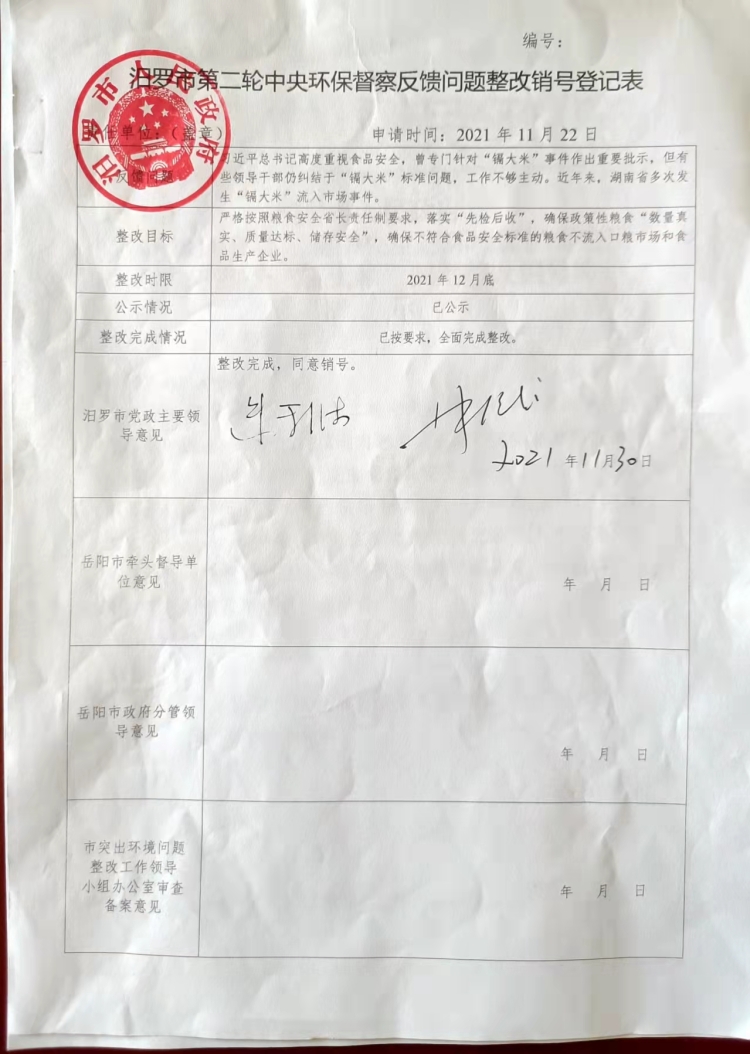 编号：
汨罗市第二轮中央环保督察反馈问题整改销号登记表
汨罗市人民政府
单位：（盖章） 申请时间：2021 年 11 月 22 日
反馈问题
习近平总书记高度重视食品安全，曾专门针对“镉大米”事件作出重要批示，但有
些领导干部仍纠结于“镉大米”标准问题，工作不够主动。近年来，湖南省多次发
生“镉大米”流入市场事件。
整改目标
严格按照粮食安全省长责任制要求，落实“先检后收”，确保政策性粮食“数量真
实、质量达标、储存安全”，确保不符合食品安全标准的粮食不流入口粮市场和食
品生产企业。
整改时限
2021 年 12 月底
公示情况
已公示
整改完成情况
已按要求，全面完成整改。
汨罗市党政主要领
导意见
整改完成，同意销号。
2021 年 11 月 30 日
岳阳市牵头督导单
位意见
年 月 日
岳阳市政府分管领
导意见
年 月 日
市突出环境问题
整改工作领导
小组办公室审查
备案意见
年 月 日